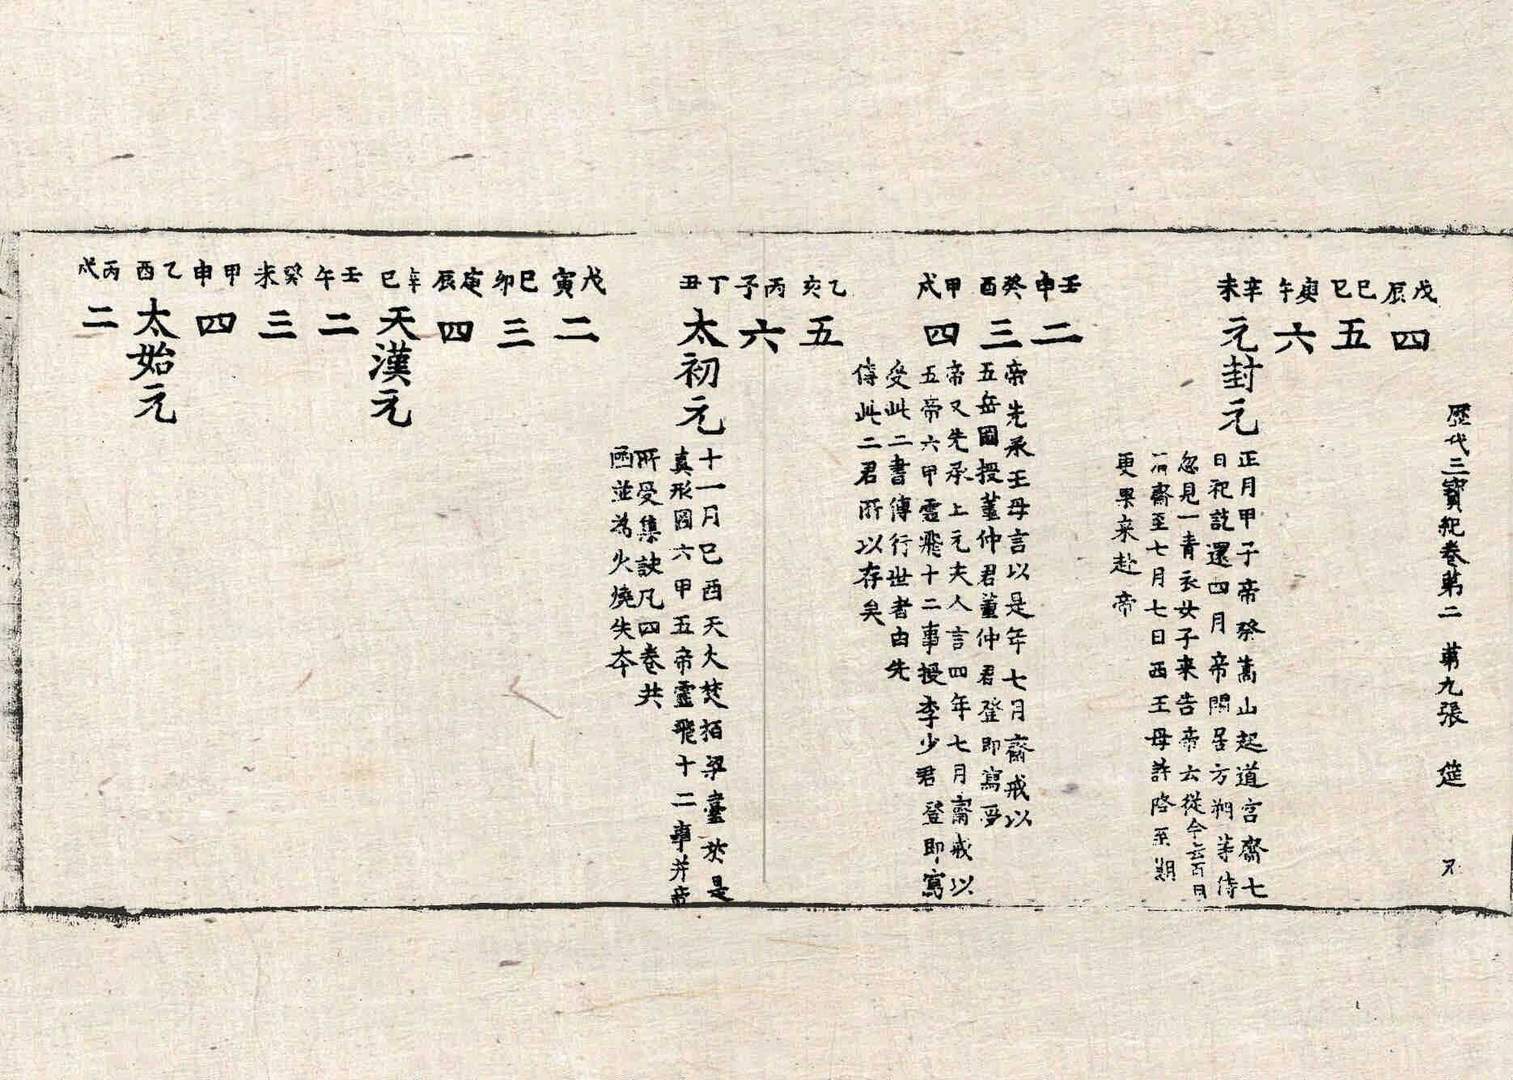 歷代三寶紀卷第二 第九張 筵
戊辰 四
己巳 五
庚午 六
辛未 元封元
正月甲子帝祭嵩山起道宮齋七
日祀訖還四月帝閑居方朔等侍
忽見一青衣女子來告帝云從今云百日
清齋至七月七日西王母許降至期
更果來赴帝
壬申 二
癸酉 三
帝先承王母言以是年七月齋戒以
五岳圖授董仲君董仲君登即寫受
甲戌 四
帝又先承上元夫人言四年七月齋戒以
五帝六甲靈飛十二事授李少君登即寫
受此二書傳行世者由先
傳此二君所以存矣
乙亥 五
丙子 六
丁丑 太初元
十一月己酉天火焚栢梁臺於是
真形圖六甲五帝靈飛十二事并帝
所受集訣凡四卷共
函並為火燒失本
戊寅 二
己卯 三
庚辰 四
辛巳 天漢元
壬午 二
癸未 三
甲申 四
乙酉 太始元
丙戌 二